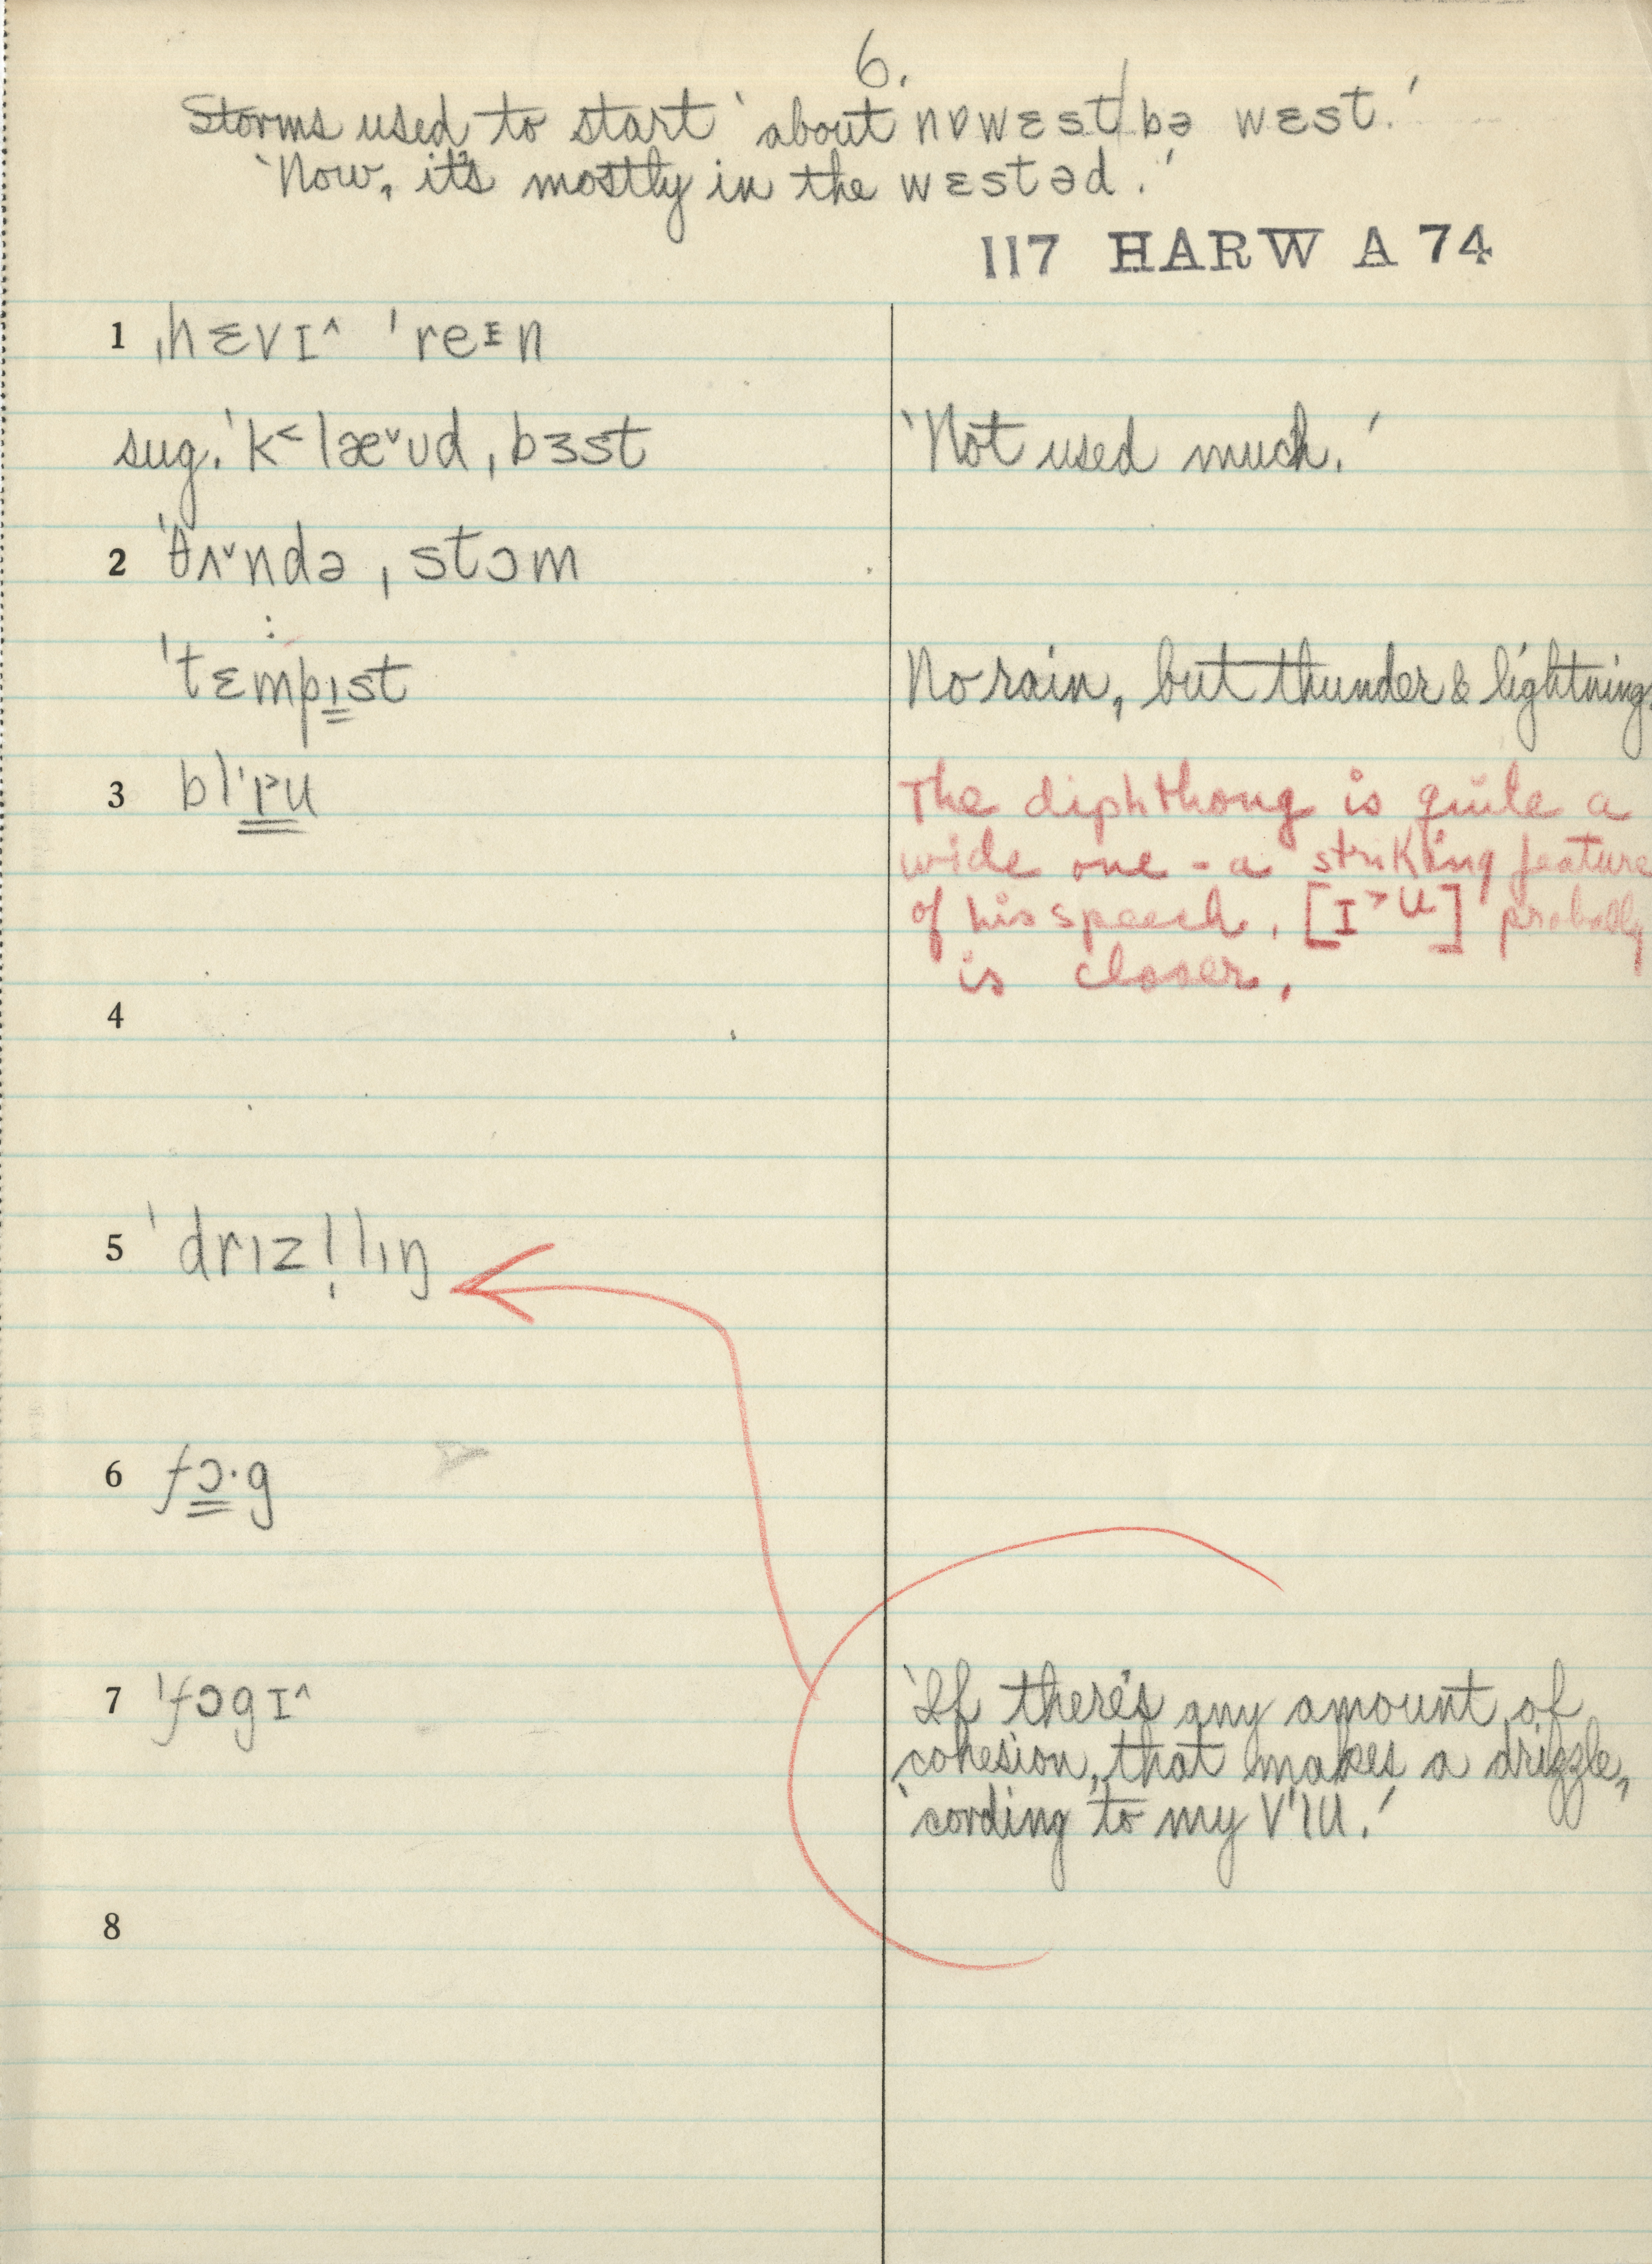 6.
Storms used to start ‘about nɒwɛst/bə wɛst.’
‘Now, it's mostly in the wɛstəd.’
117 HARW A 74
1 ˌhɛvɪ˄ ˈreɪn
sug. ˈk˂læ˅ʊd ˌbɜst ‘Not used much.’
2 ˈθʌ˅ndə ˌstɔm
:
ˈtɛmpɪst No rain, but thunder & lightning.
3 blˈɪ˃u The diphthong is quite a
wide one - a striking feature
of his speech. [ɪ˃u] probably
is closer.
4
5 ˈdrɪzl̩lɪŋ
6 fɔ·g
7 ˈfɔgɪ˄ ‘If there's any amount of
cohesion, that makes a drizzle,
'cording to my vˈɪu.’
8